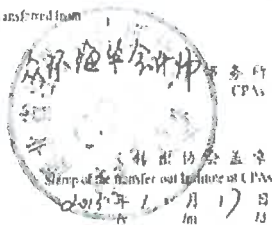 ansferred from
众环海华会计师事务所
CPAs
转出协会盖章
Stamp of the transfer-out Institute of CPAs
年 月 日
/y /m /d